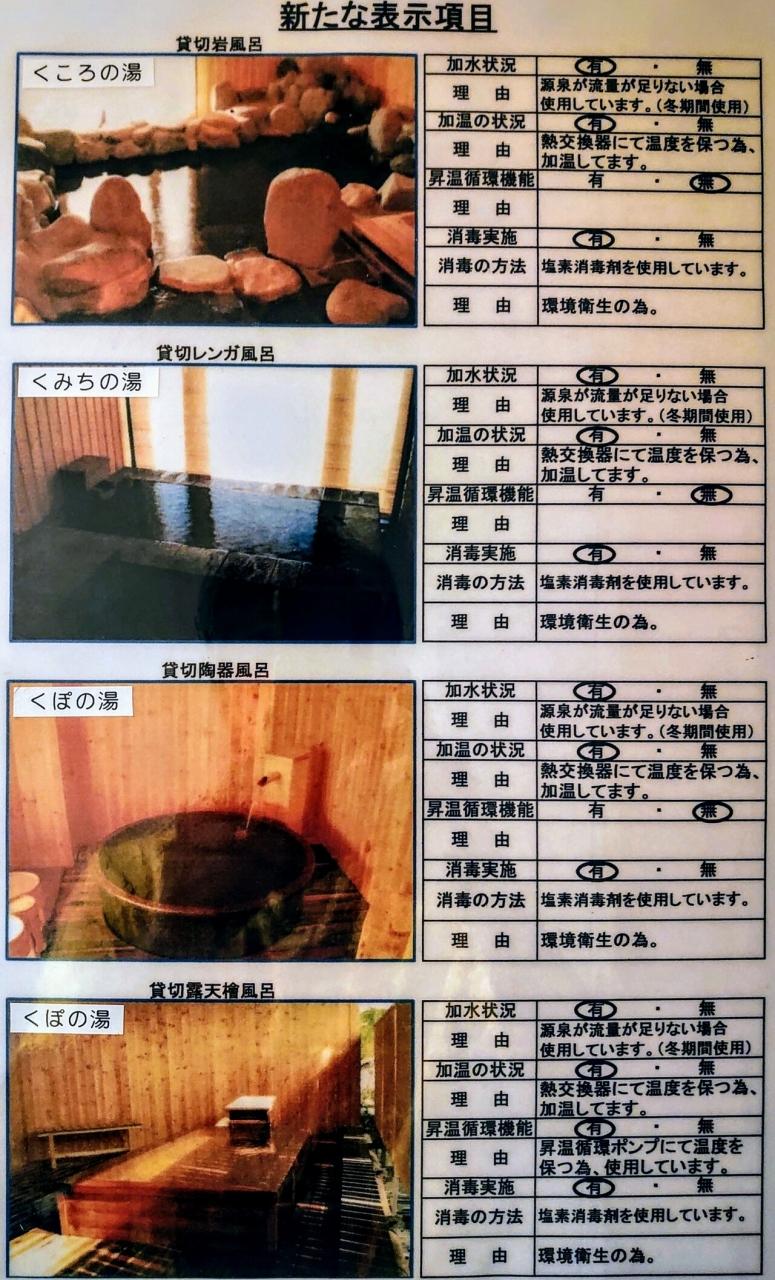 新たな表示項目
貸切岩風呂
くころの湯
加水状況 有 ・ 無
理 由 源泉が流量が足りない場合
使用しています。(冬期間使用)
加温の状況 有 ・ 無
理 由 熱交換器にて温度を保つ為、
加温してます。
昇温循環機能 有 ・ 無
理 由
消毒実施 有 ・ 無
消毒の方法 塩素消毒剤を使用しています。
理 由 環境衛生の為。
貸切レンガ風呂
くみちの湯
加水状況 有 ・ 無
理 由 源泉が流量が足りない場合
使用しています。(冬期間使用)
加温の状況 有 ・ 無
理 由 熱交換器にて温度を保つ為、
加温してます。
昇温循環機能 有 ・ 無
理 由
消毒実施 有 ・ 無
消毒の方法 塩素消毒剤を使用しています。
理 由 環境衛生の為。
貸切陶器風呂
くぽの湯
加水状況 有 ・ 無
理 由 源泉が流量が足りない場合
使用しています。(冬期間使用)
加温の状況 有 ・ 無
理 由 熱交換器にて温度を保つ為、
加温してます。
昇温循環機能 有 ・ 無
理 由
消毒実施 有 ・ 無
消毒の方法 塩素消毒剤を使用しています。
理 由 環境衛生の為。
貸切露天檜風呂
くぽの湯
加水状況 有 ・ 無
理 由 源泉が流量が足りない場合
使用しています。(冬期間使用)
加温の状況 有 ・ 無
理 由 熱交換器にて温度を保つ為、
加温してます。
昇温循環機能 有 ・ 無
理 由 昇温循環ポンプにて温度を
保つ為、使用しています。
消毒実施 有 ・ 無
消毒の方法 塩素消毒剤を使用しています。
理 由 環境衛生の為。